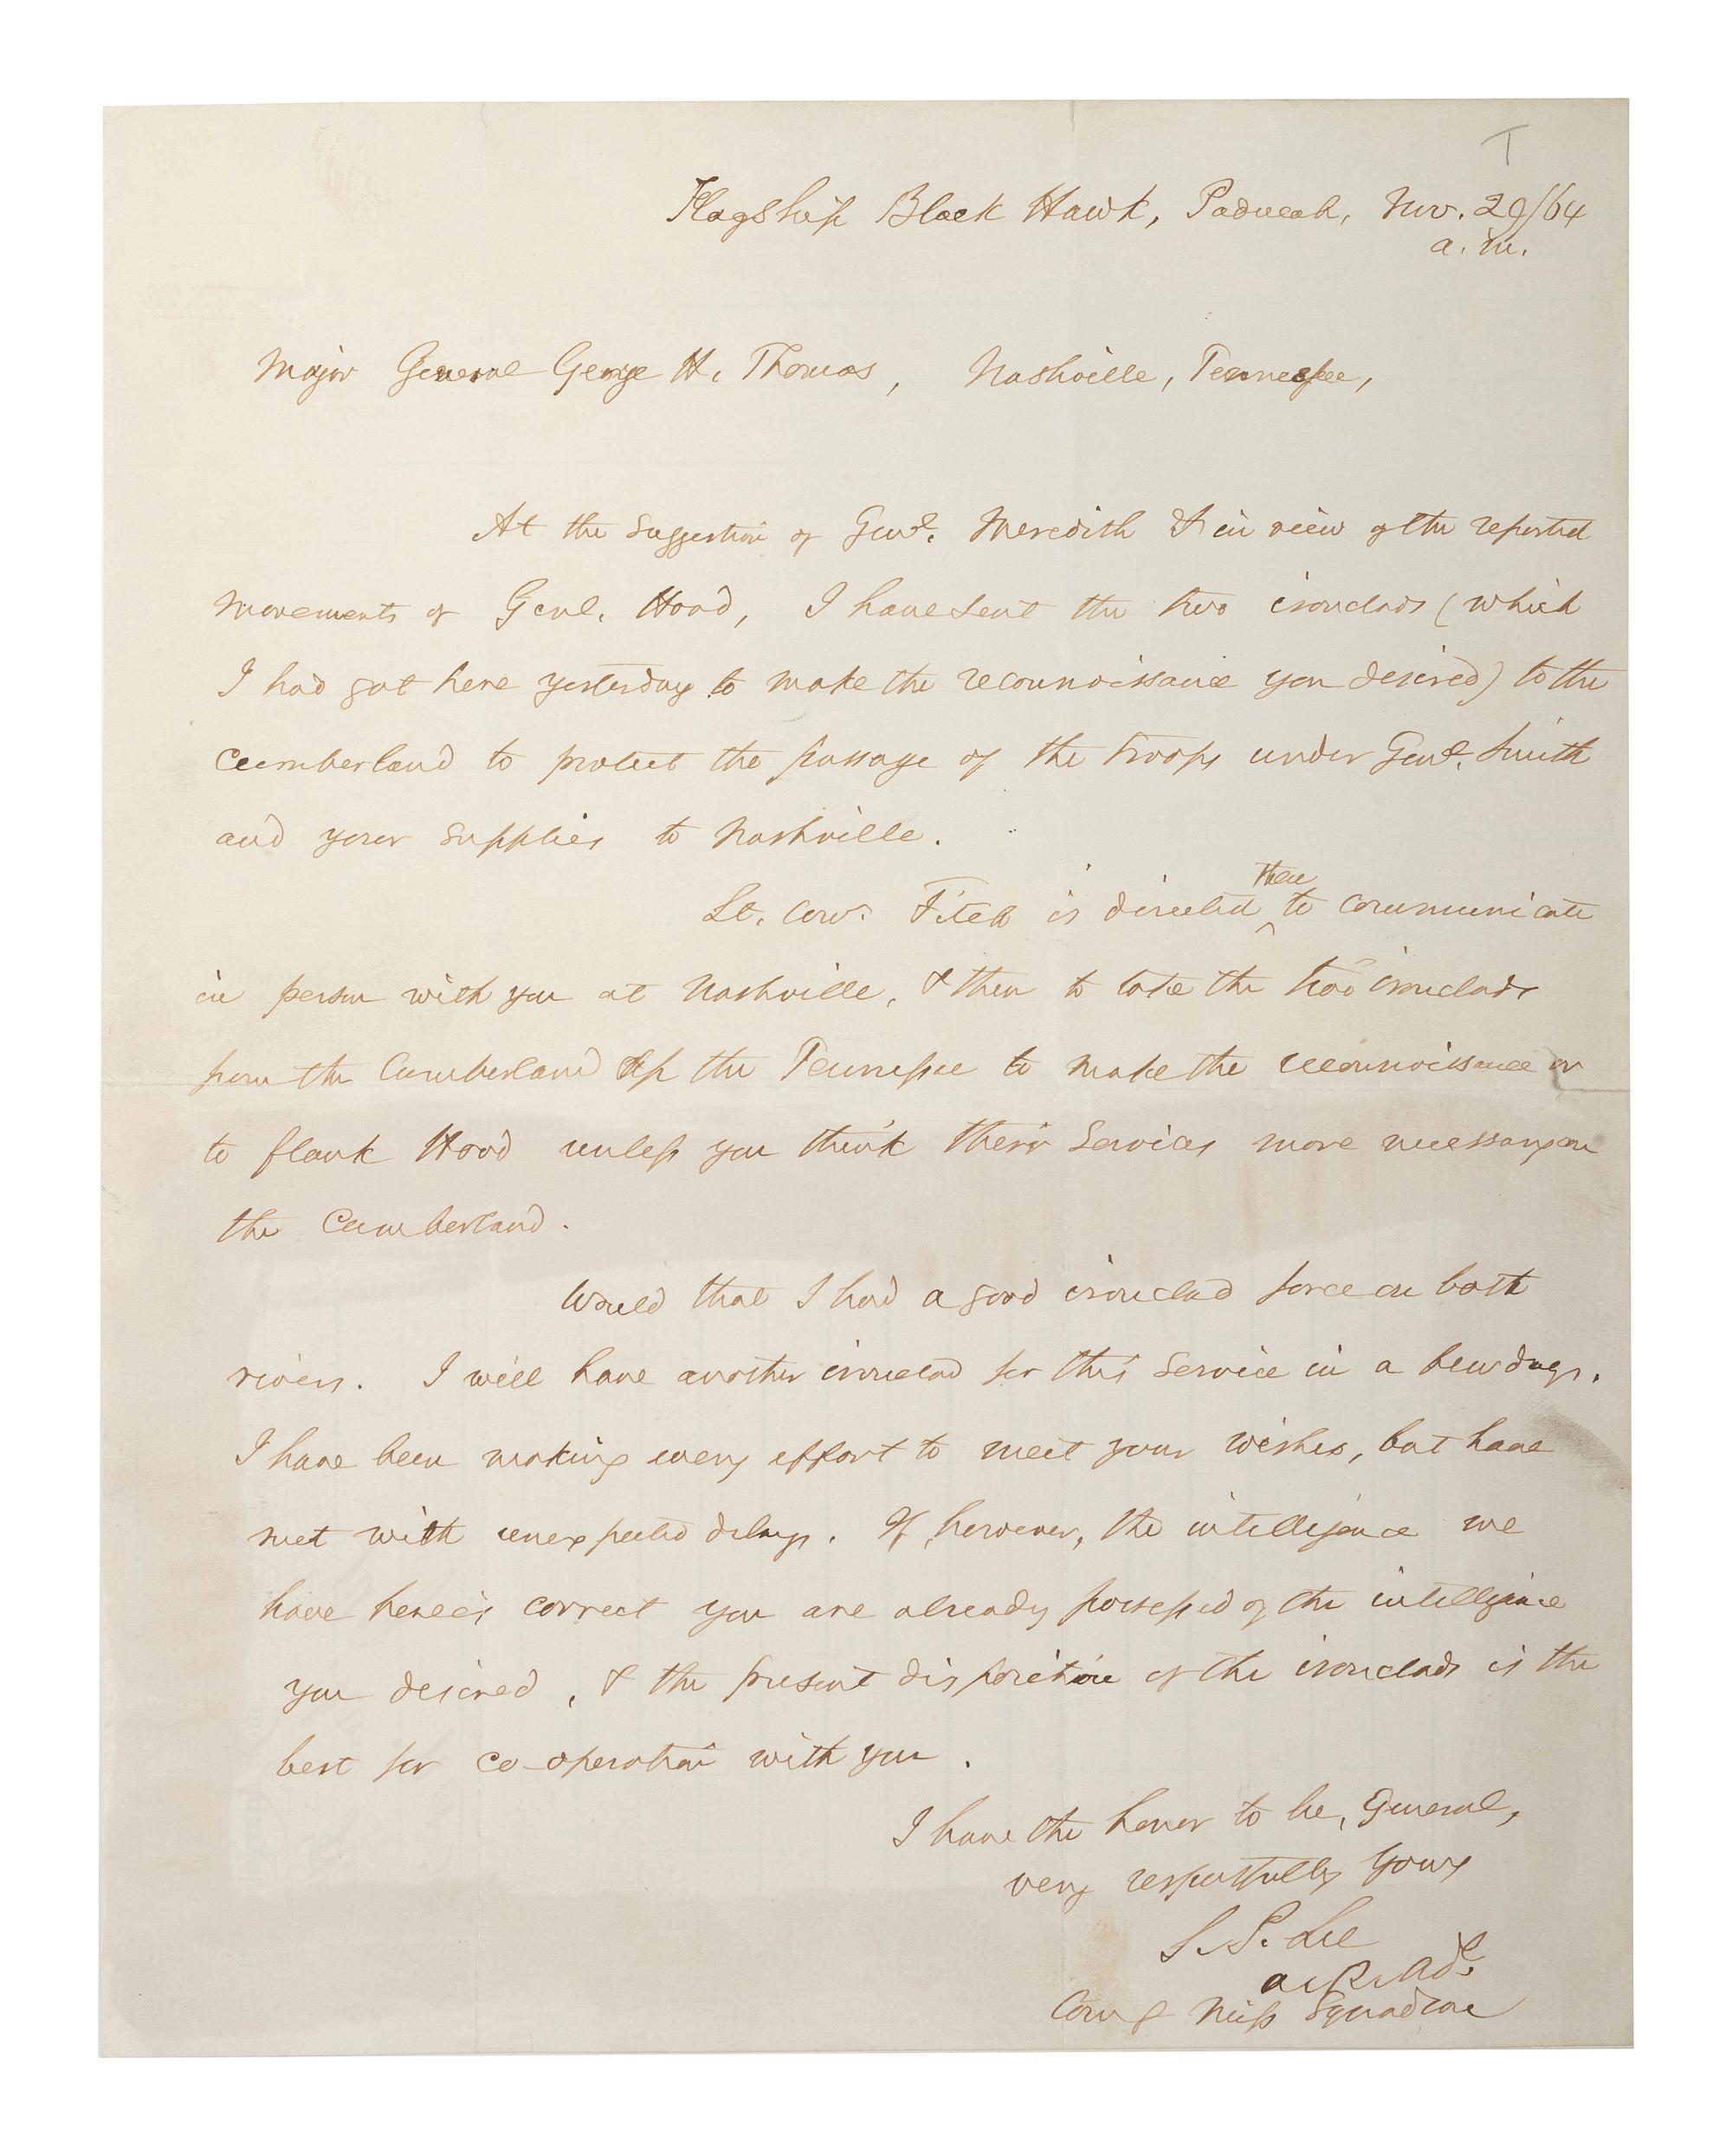 T
Flagship Black Hawk, Paducah, Nov. 29/64
a.m.
Major General George H. Thomas, Nashville, Tennessee,
At the suggestion of Genl. Meredith & in view of the reported
movements of Genl. Hood, I have sent the two ironclads (which
I had got here yesterday to make the reconnoissance you desired) to the
Cumberland to protect the passage of the troops under Genl. Smith
and your supplies to Nashville.
then
Lt. Com. Fitch is directed to communicate
in person with you at Nashville, & then to take the two ironclads
from the Cumberland up the Tennessee to make the reconnoissance or
to flank Hood unless you think their services more necessary on
the Cumberland.
Would that I had a good ironclad force on both
rivers. I will have another ironclad for this service in a few days.
I have been making every effort to meet your wishes, but have
met with unexpected delays. If, however, the intelligence we
have here is correct you are already possessed of the intelligence
you desired, & the present disposition of the ironclads is the
best for co-operation with you.
I have the honor to be, General,
very respectfully yours
S. P. Lee
a. R. Adl.
Comg Miss Squadron